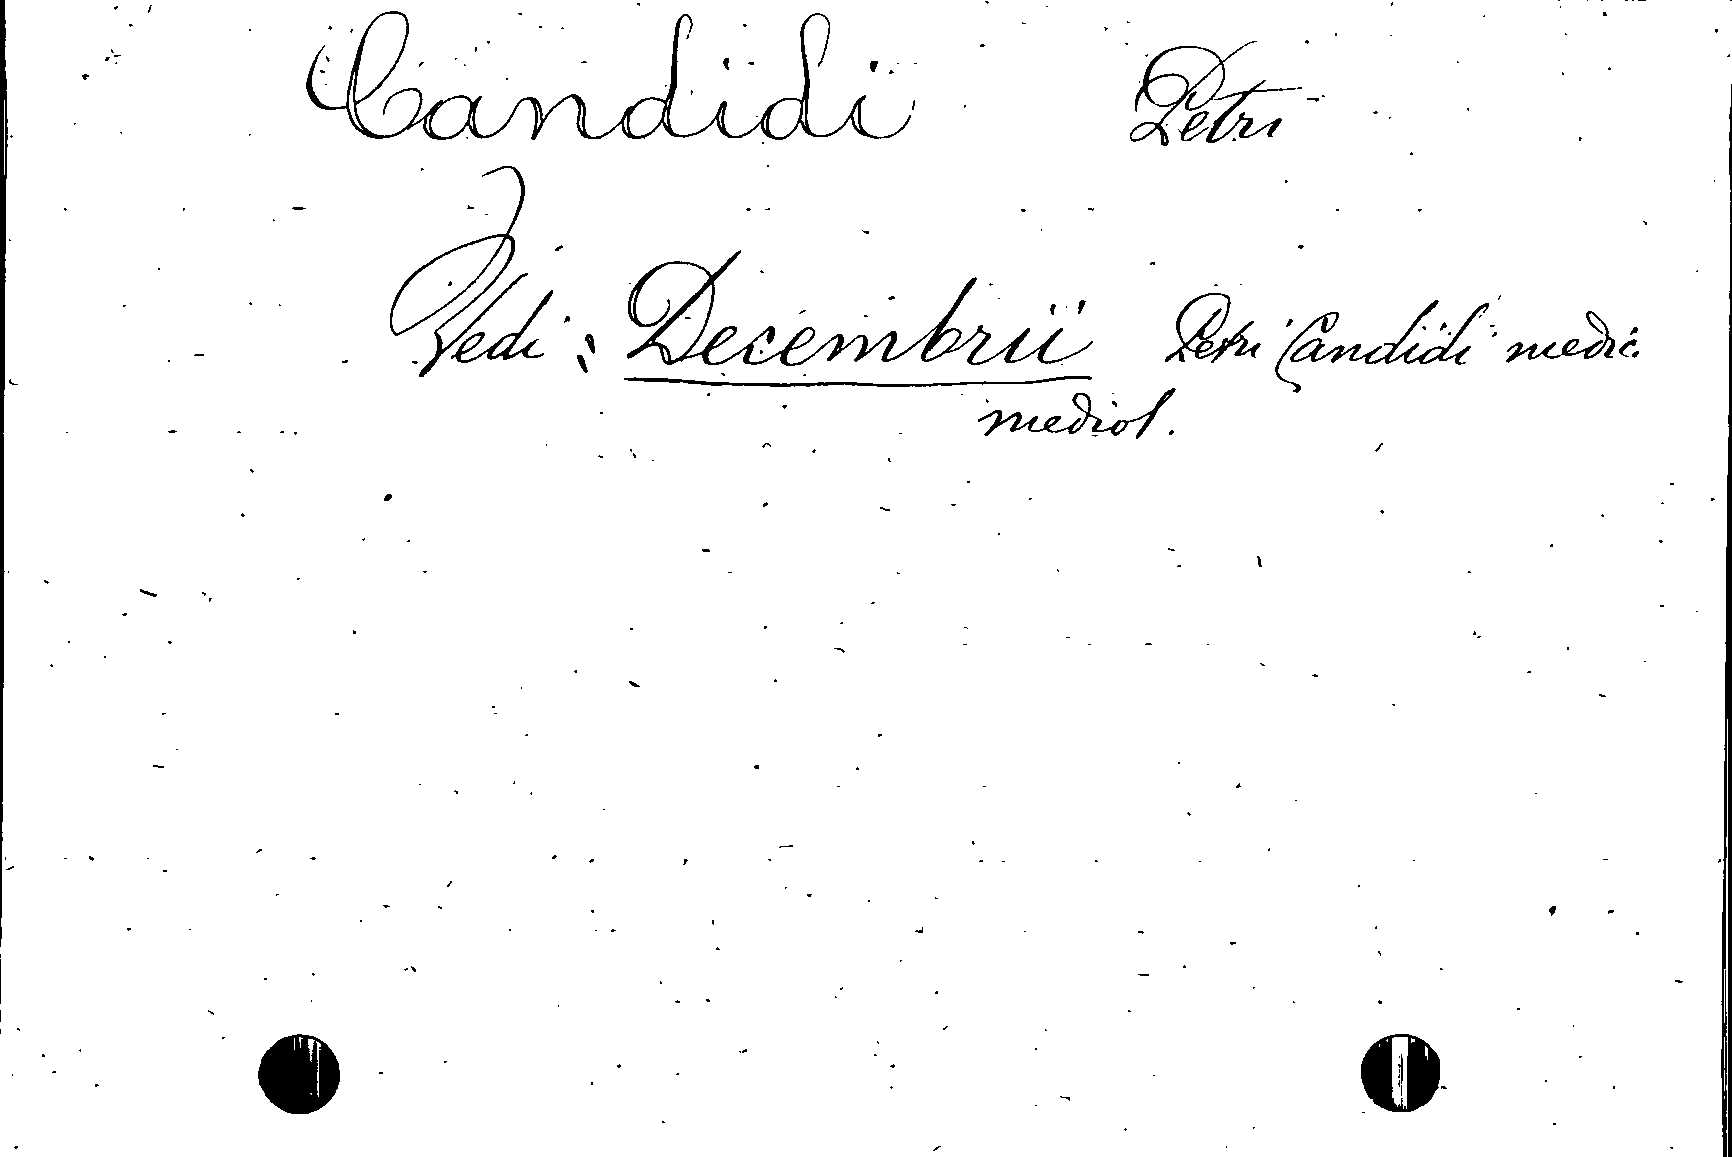 Candidi Petri
Vedi: Decembrii Petri Candidi medic.
mediol.